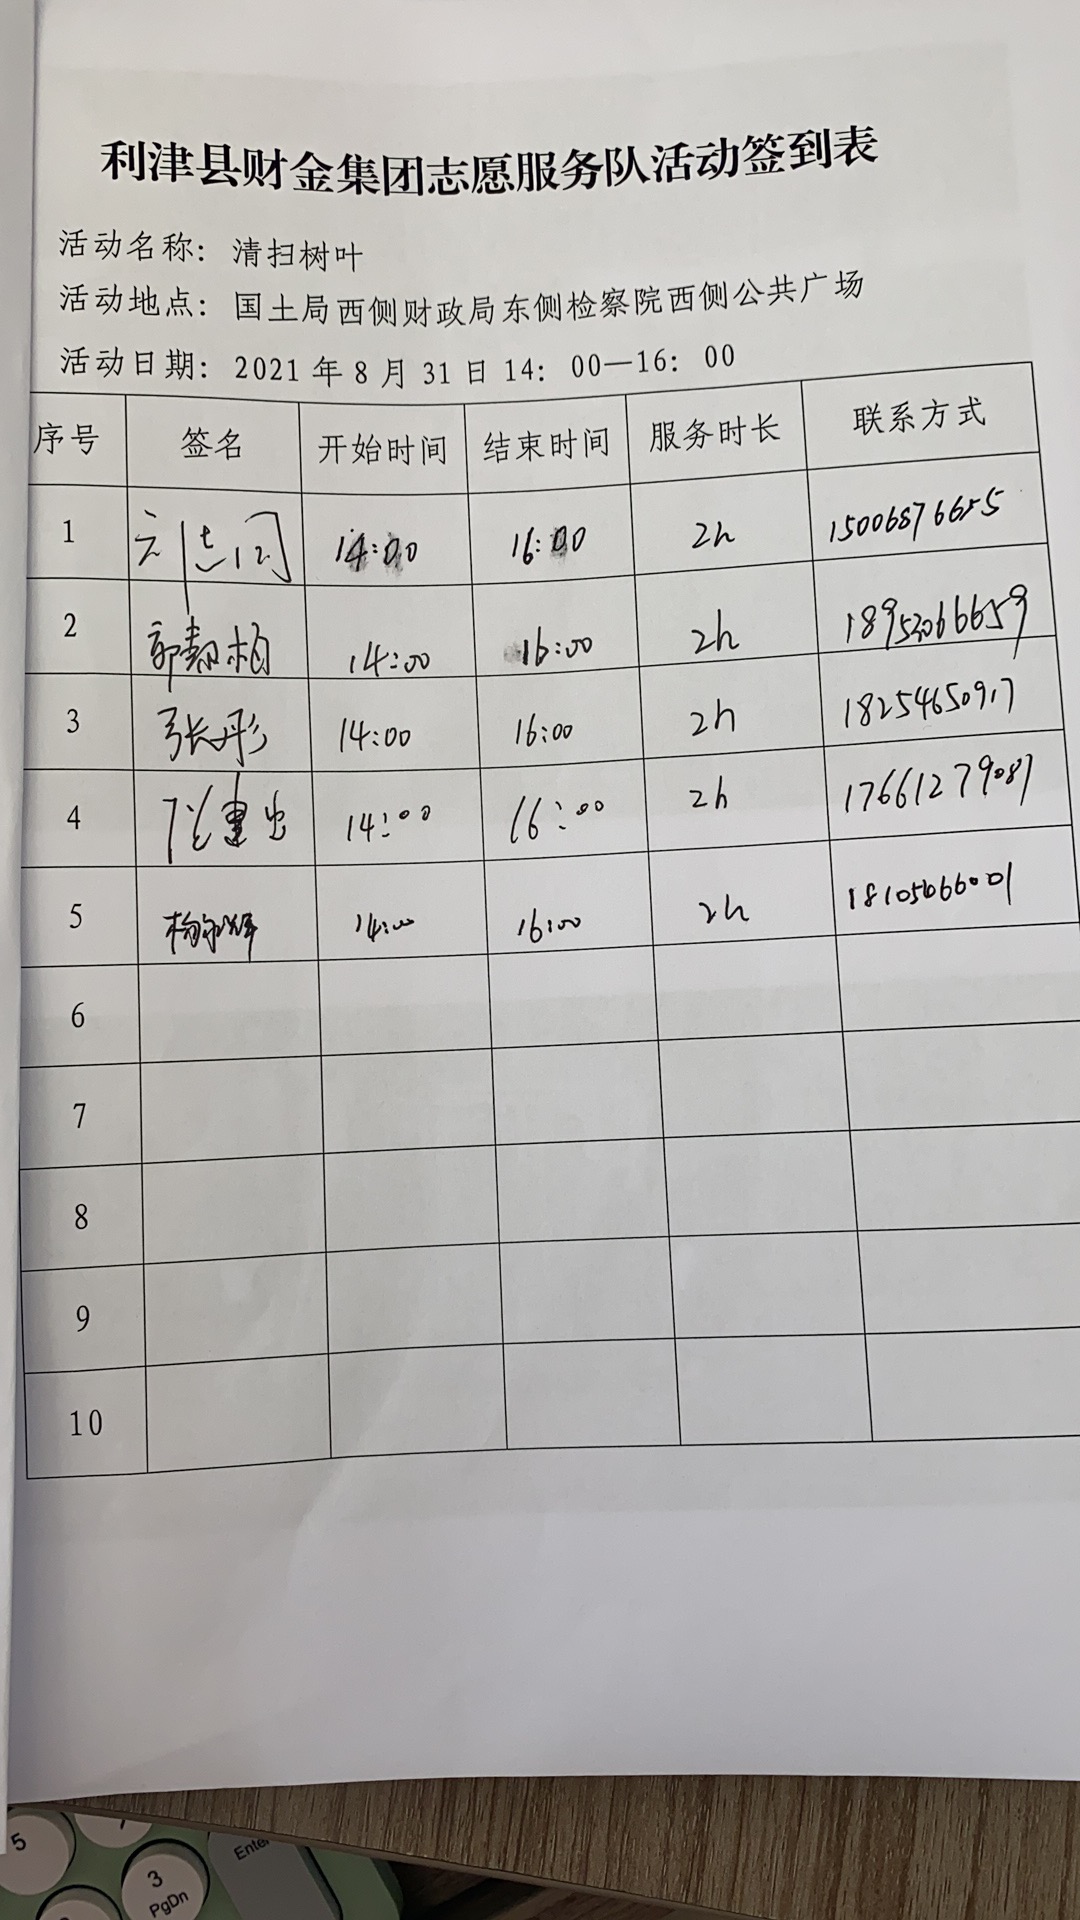 利津县财金集团志愿服务队活动签到表
活动名称：清扫树叶
活动地点：国土局西侧财政局东侧检察院西侧公共广场
活动日期：2021年8月31日14：00—16：00
序号 签名 开始时间 结束时间 服务时长 联系方式
1 14:00 16:00 2h 15006876655
2 14:00 16:00 2h
3 张彤 14:00 16:00 2h 18254650917
4 14:00 16:00 2h 17661279087
5 14:00 16:00 2h 18105066001
6
7
8
9
10
5
3
PgDn
Enter